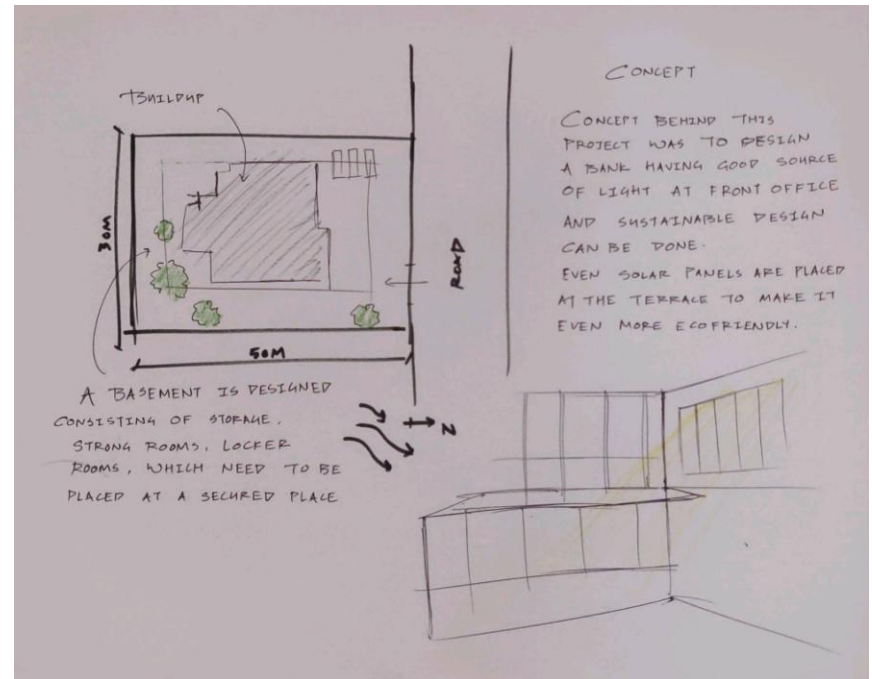 BUILDUP
30M
50M
ROAD
N
A BASEMENT IS DESIGNED
CONSISTING OF STORAGE,
STRONG ROOMS, LOCKER
ROOMS, WHICH NEED TO BE
PLACED AT A SECURED PLACE
CONCEPT
CONCEPT BEHIND THIS
PROJECT WAS TO DESIGN
A BANK HAVING GOOD SOURCE
OF LIGHT AT FRONT OFFICE
AND SUSTAINABLE DESIGN
CAN BE DONE.
EVEN SOLAR PANELS ARE PLACED
AT THE TERRACE TO MAKE IT
EVEN MORE ECOFRIENDLY.